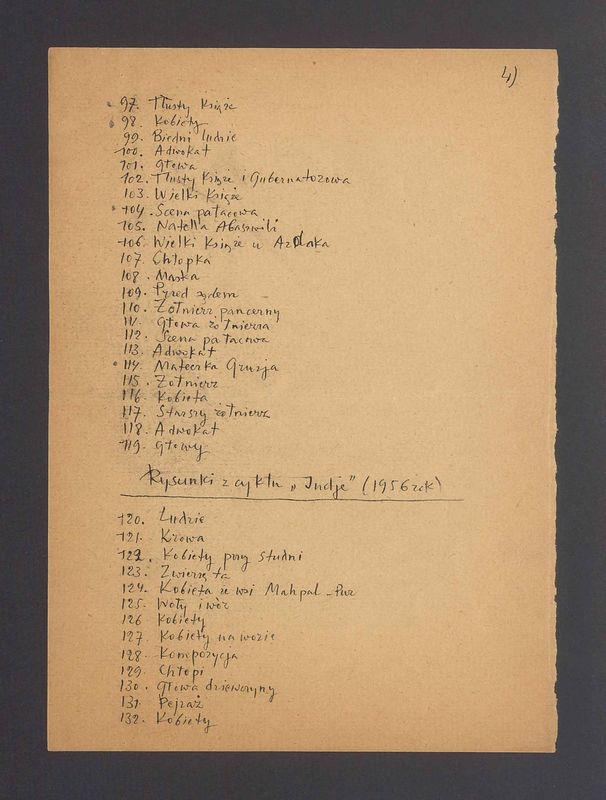 4)
97. Tłusty Książe
98. Kobiety
99. Biedni ludzie
100. Adwokat
101. Głowa
102. Tłusty Książe i Gubernatorowa
103. Wielki Książe
104. Scena pałacowa
105. Natella Abaszwili
106. Wielki Książe u Azdaka
107. Chłopka
108. Maska
109. Przed sądem
110. Żołnierz pancerny
111. Głowa żołnierza
112. Scena pałacowa
113. Adwokat
114. Mateczka Gruzja
115. Żołnierz
116. Kobieta
117. Starszy żołnierz
118. Adwokat
119. Głowy
Rysunki z cyklu "Indje" (1956 rok)
120. Ludzie
121. Krowa
122. Kobiety przy studni
123. Zwierzęta
124. Kobieta ze wsi Mahpal-Pur
125. Woły i wóz
126 Kobiety
127. Kobiety na wozie
128. Kompozycja
129. Chłopi
130. Głowa dziewczyny
131. Pejzaż
132. Kobiety